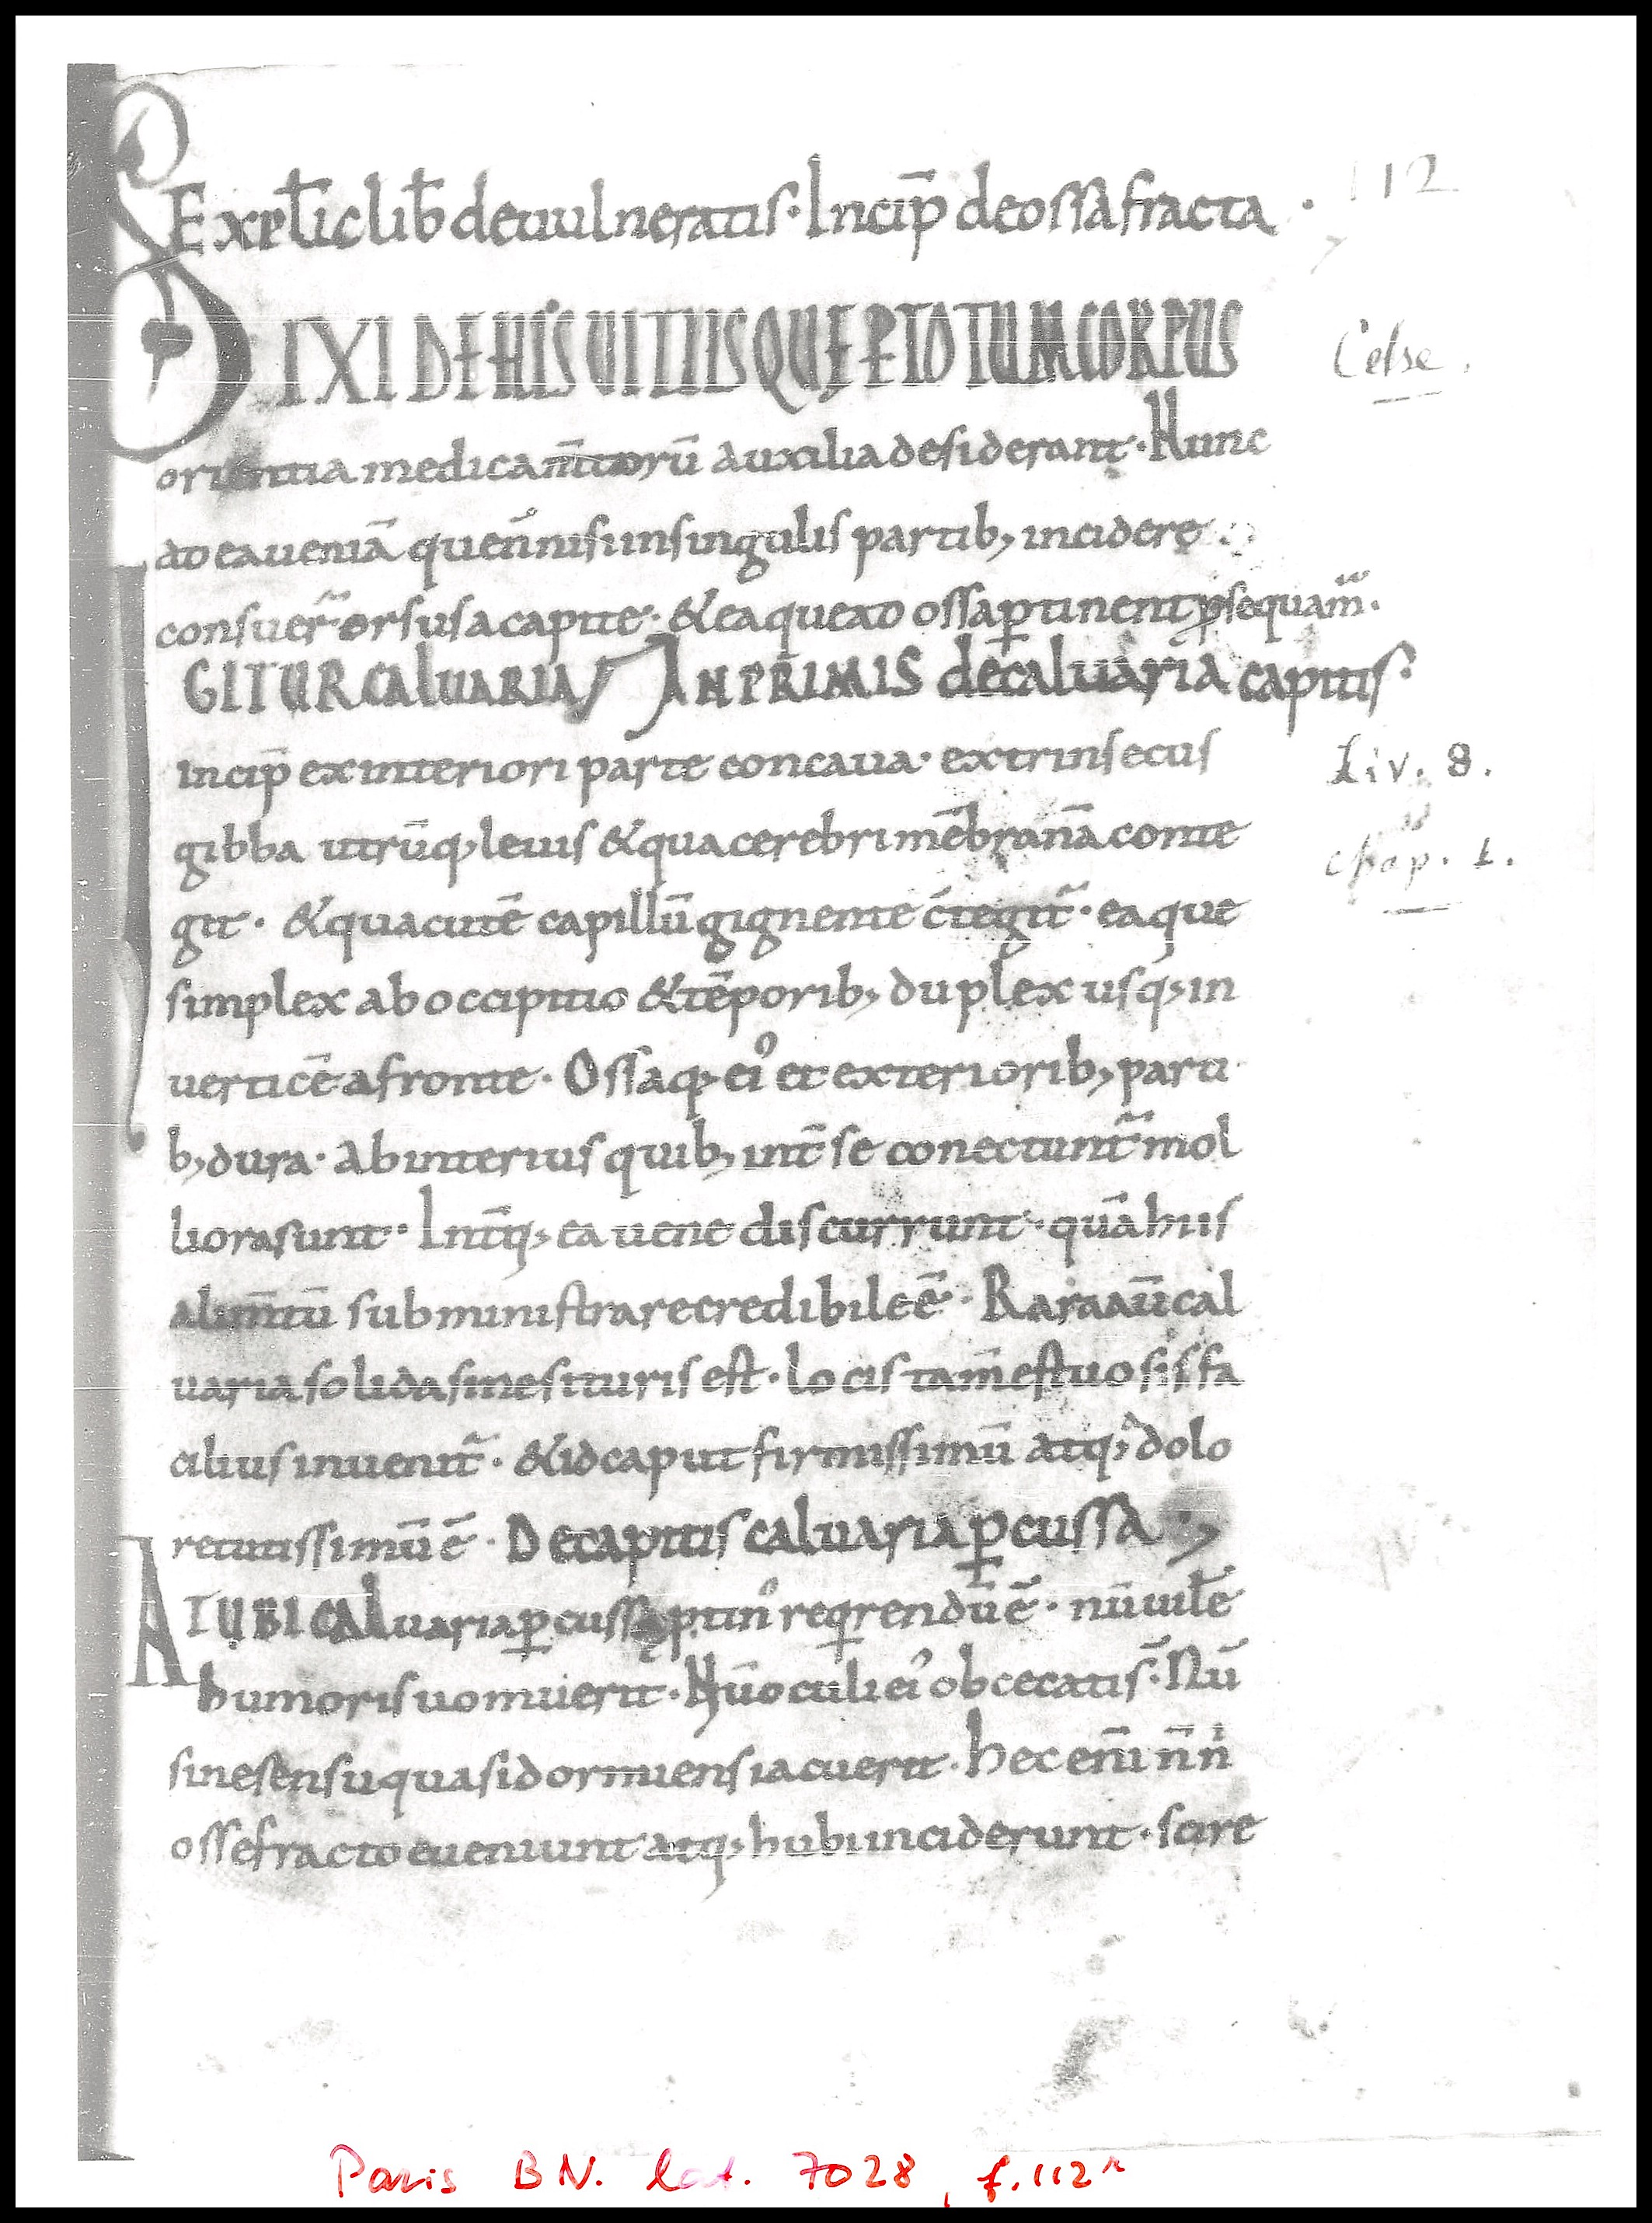 112
Expl̄ic lib̄ de uulneratis · Incip̄ de ossa fracta ·
DIXI DE HIS UITIIS QUE P TOTUM CORPUS
Celse.
orientia medicam̄torū auxilia desiderant · Nunc
ad ea ueniā que n̄ nisi in singulis partib; incidere
consuer̄ orsus a capite · & ea que ad ossa ꝑtinent ꝓsequam̄ ·
IGITUR CALUARIA IN PRIMIS de caluaria capitis ·
incip̄ ex interiori parte concaua · extrinsecus
Liv. 8.
gibba utrūq; leuis & qua cerebri mēbranā conte
chap. 1.
git · & qua cutē capillū gignente c̄tegit̄ · ea que
simplex ab occipitio & tēporib; duplex usq; in
uerticē a fronte · Ossaq; ei' et exteriorib; parti
b; dura · ab interius quib; int̄ se conectunt̄ mol
liora sunt · Int̄q; ea uene discurrunt · quā hiis
alim̄tū subministrare credibile ē · Rara aū cal
uaria solida sine suturis est · locis tam̄ estuosis fa
cilius inuenit̄ · & id caput firmissimū atq; a dolo
re tutissimū ē · De capitis caluaria ꝑcussa ·,
AT UBI CALuaria ꝑcussa ptin' reqirendū ē · nū uilē
humoris uomuerit · Nū oculi ei' obcecatis̄ · Nū
sine sensu quasi dormiens iacuerit · hec eni̅ n̄ n̄
osse fracto eueniunt atq; hubi inciderunt · scire
Paris BN. lat. 7028, f. 112r